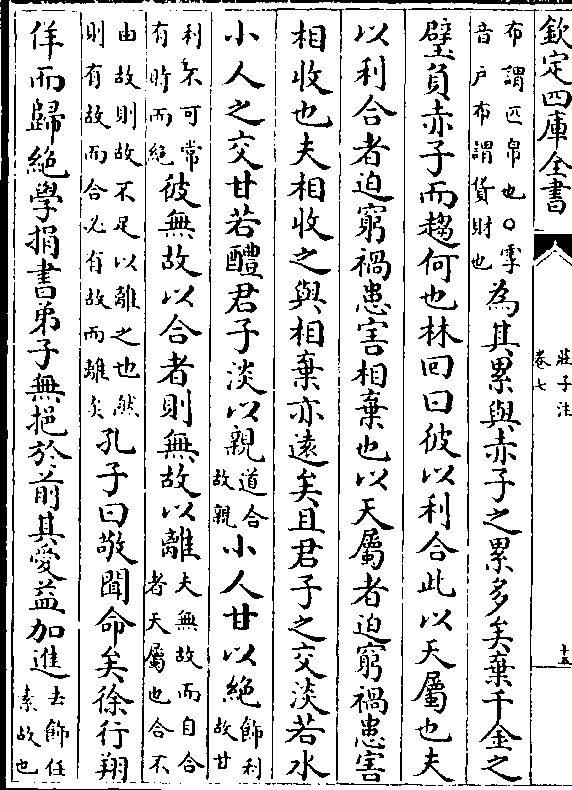 欽定四庫全書
莊子注
卷七
十五
布謂匹帛也○雩
音户布謂貨財也
為其累與赤子之累多矣棄千金之
璧負赤子而趨何也林回曰彼以利合此以天屬也夫
以利合者迫窮禍患害相棄也以天屬者迫窮禍患害
相收也夫相收之與相棄亦遠矣且君子之交淡若水
小人之交甘若醴君子淡以親
道合
故親
小人甘以絶
飾利
故甘
利不可常
有時而絶
彼無故以合者則無故以離
夫無故而自合
者天屬也合不
由故則故不足以離之也然
則有故而合必有故而離矣
孔子曰敬聞命矣徐行翔
佯而歸絶學捐書弟子無挹於前其愛益加進
去飾任
素故也